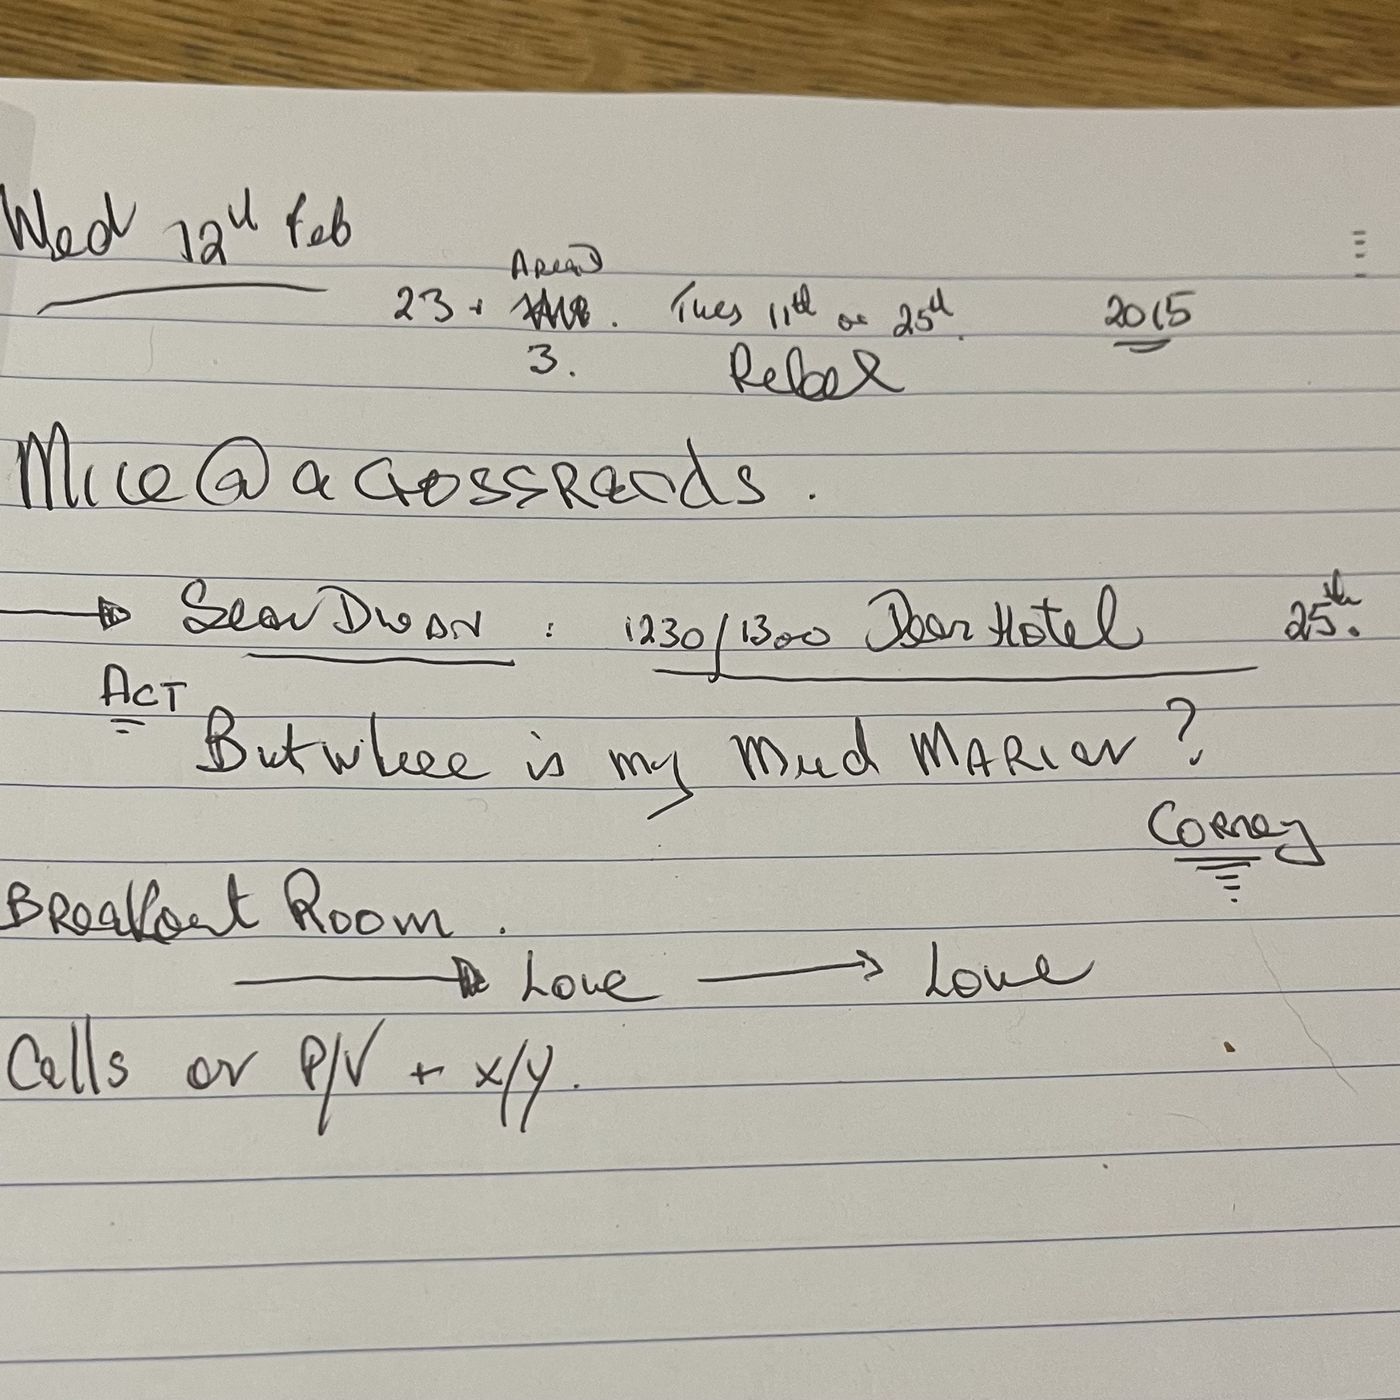 Wed 12th Feb
23 + Aread . Tues 11th or 25th. 2015
3. Rebel
Mice @ a CrossRoads .
Sean Dwan : 1230/1300 Dean Hotel 25th.
ACT
But where is my Mud MARIAN ?
Corney
BReakout Room .
Love Love
Calls or P/V + x/y.